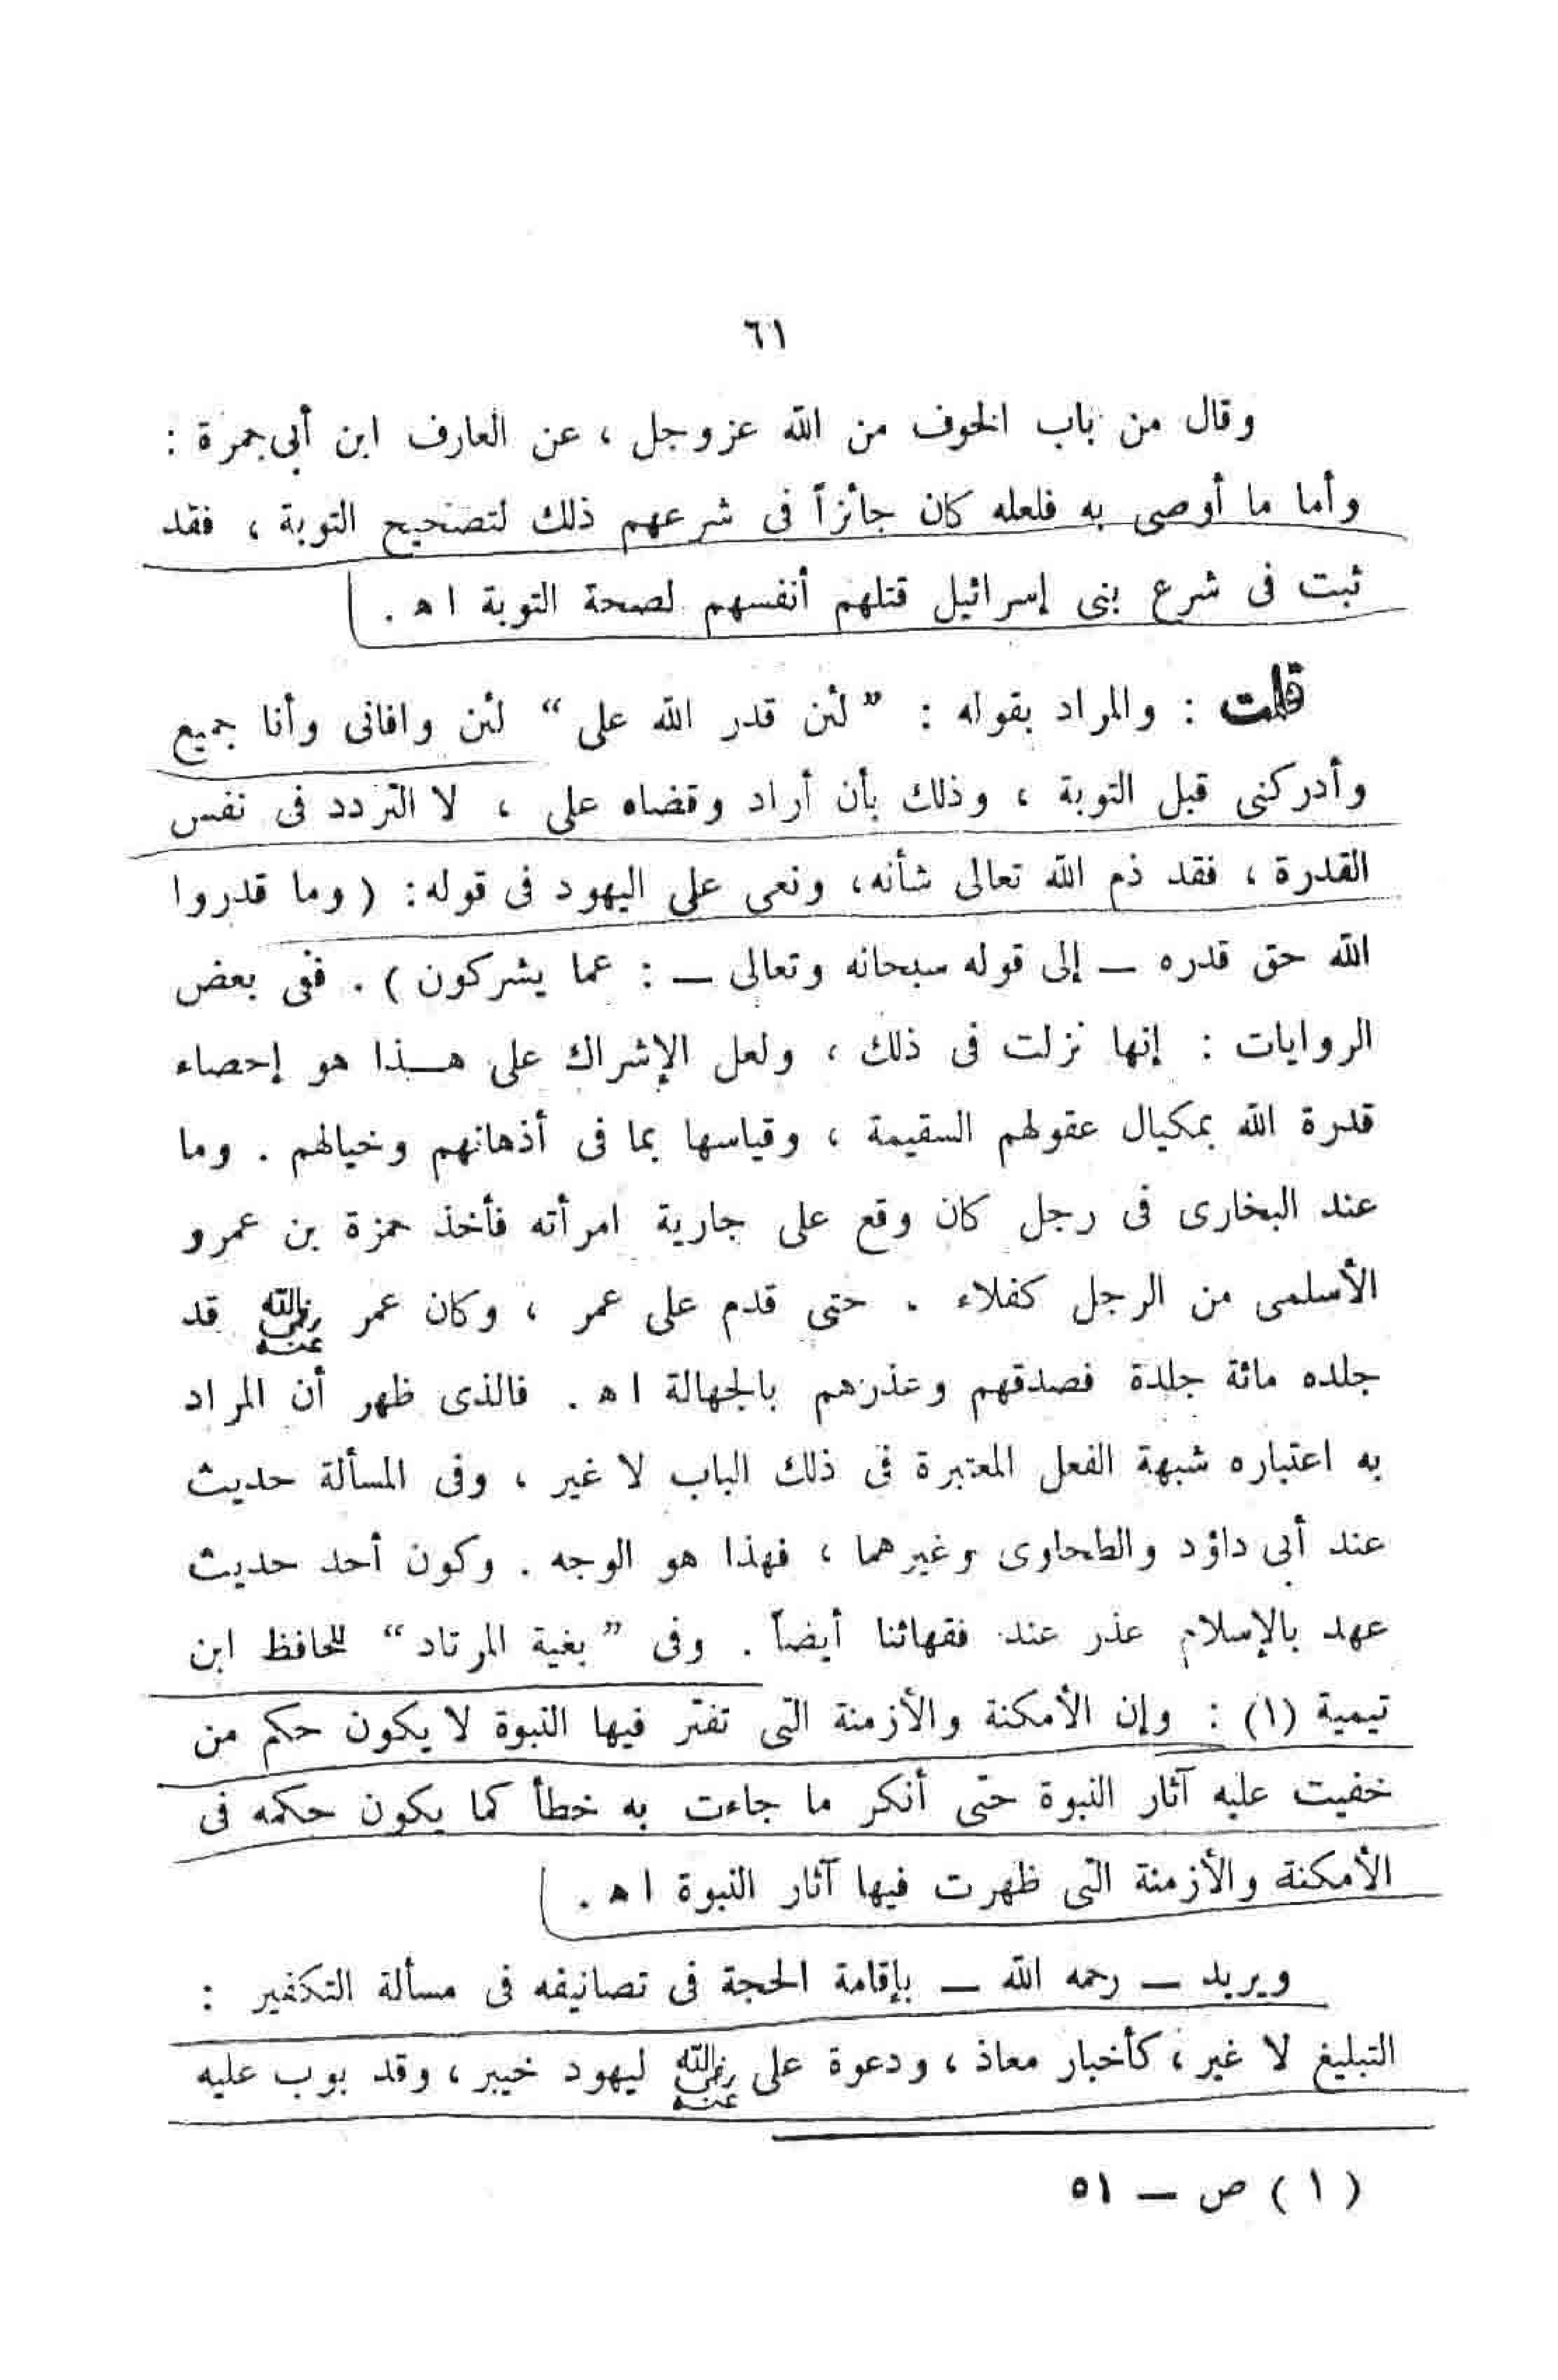 ٦١
وقال من باب الخوف من الله عزوجل ، عن العارف ابن أبى جمرة :
وأما ما أوصى به فلعله كان جائزاً فى شرعهم ذلك لتصحيح التوبة ، فقد
ثبت فى شرع بنى إسرائيل قتلهم أنفسهم لصحة التوبة ا ه .
قلت : والمراد بقوله : ” لئن قدر الله على “ لئن وافانى وأنا جميع
وأدركنى قبل التوبة ، وذلك بأن أراد وقضاه على ، لا التردد فى نفس
القدرة ، فقد ذم الله تعالى شأنه، ونعى على اليهود فى قوله: ( وما قدروا
الله حق قدره ــ إلى قوله سبحانه وتعالى ــ : عما يشركون ) . ففى بعض
الروايات : إنها نزلت فى ذلك ، ولعل الإشراك على هــذا هو إحصاء
قدرة الله بمكيال عقولهم السقيمة ، وقياسها بما فى أذهانهم وخيالهم . وما
عند البخارى فى رجل كان وقع على جارية امرأته فأخذ حمزة بن عمرو
الأسلمى من الرجل كفلاء . حتى قدم على عمر ، وكان عمر رضى الله عنه قد
جلده مائة جلدة فصدقهم وعذرهم بالجهالة ا ه . فالذى ظهر أن المراد
به اعتباره شبهة الفعل المعتبرة فى ذلك الباب لا غير ، وفى المسألة حديث
عند أبى داؤد والطحاوى وغيرهما ، فهذا هو الوجه . وكون أحد حديث
عهد بالإسلام عذر عند فقهائنا أيضاً . وفى ” بغية المرتاد “ للحافظ ابن
تيمية (١) : وإن الأمكنة والأزمنة التى تفتر فيها النبوة لا يكون حكم من
خفيت عليه آثار النبوة حتى أنكر ما جاءت به خطأ كما يكون حكمه فى
الأمكنة والأزمنة التى ظهرت فيها آثار النبوة ا ه .
ويريد ــ رحمه الله ــ بإقامة الحجة فى تصانيفه فى مسألة التكفير :
التبليغ لا غير ، كأخبار معاذ ، ودعوة على رضى الله عنه ليهود خيبر ، وقد بوب عليه
( ١ ) ص ــ ٥١